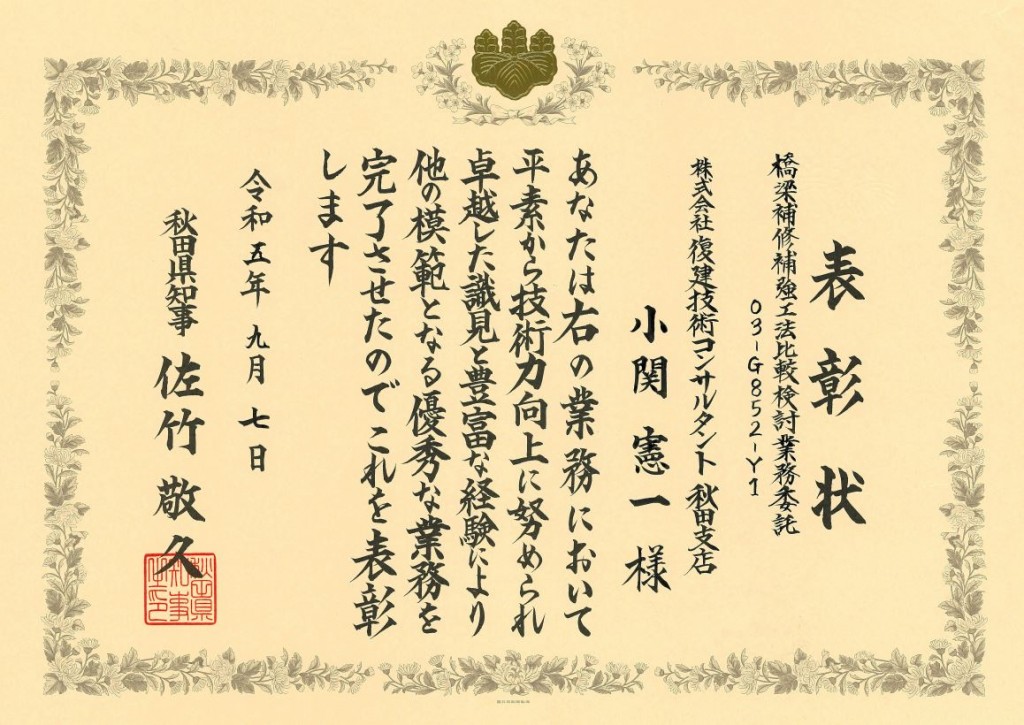 表彰状
橋梁補修補強工法比較検討業務委託
03-G852-Y1
株式会社 復建技術コンサルタント 秋田支店
小関 憲一 様
あなたは右の業務において
平素から技術力向上に努められ
卓越した識見と豊富な経験により
他の模範となる優秀な業務を
完了させたのでこれを表彰
します
令和五年 九月 七日
秋田県知事 佐竹 敬久
秋田県知事之印